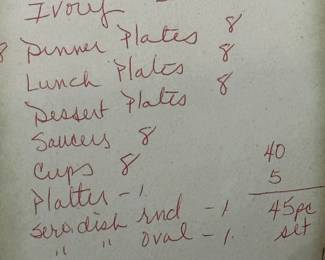 Ivory
8 Dinner Plates 8
Lunch Plates 8
Dessert Plates 8
Saucers 8
Cups 8
40
Platter - 1
5
Serv dish rnd - 1
45pc
" " oval - 1
set